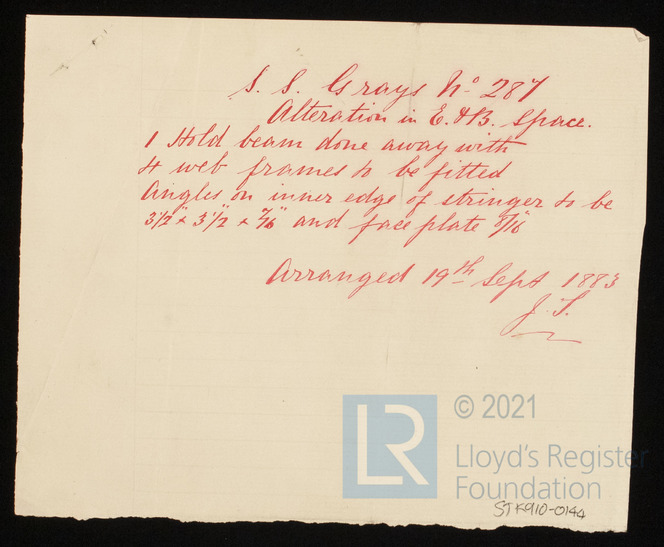 S. S. Grays No 287
Alteration in E. & B. Space.
1 Hold beam done away with
4 web frames to be fitted
Angles on inner edge of stringer to be
3 1/2" x 3 1/2" x 7/16" and face plate 8/16"
Arranged 19th Sept 1883
J. S.
LR
© 2021
Lloyd's Register
Foundation
STK910-0144